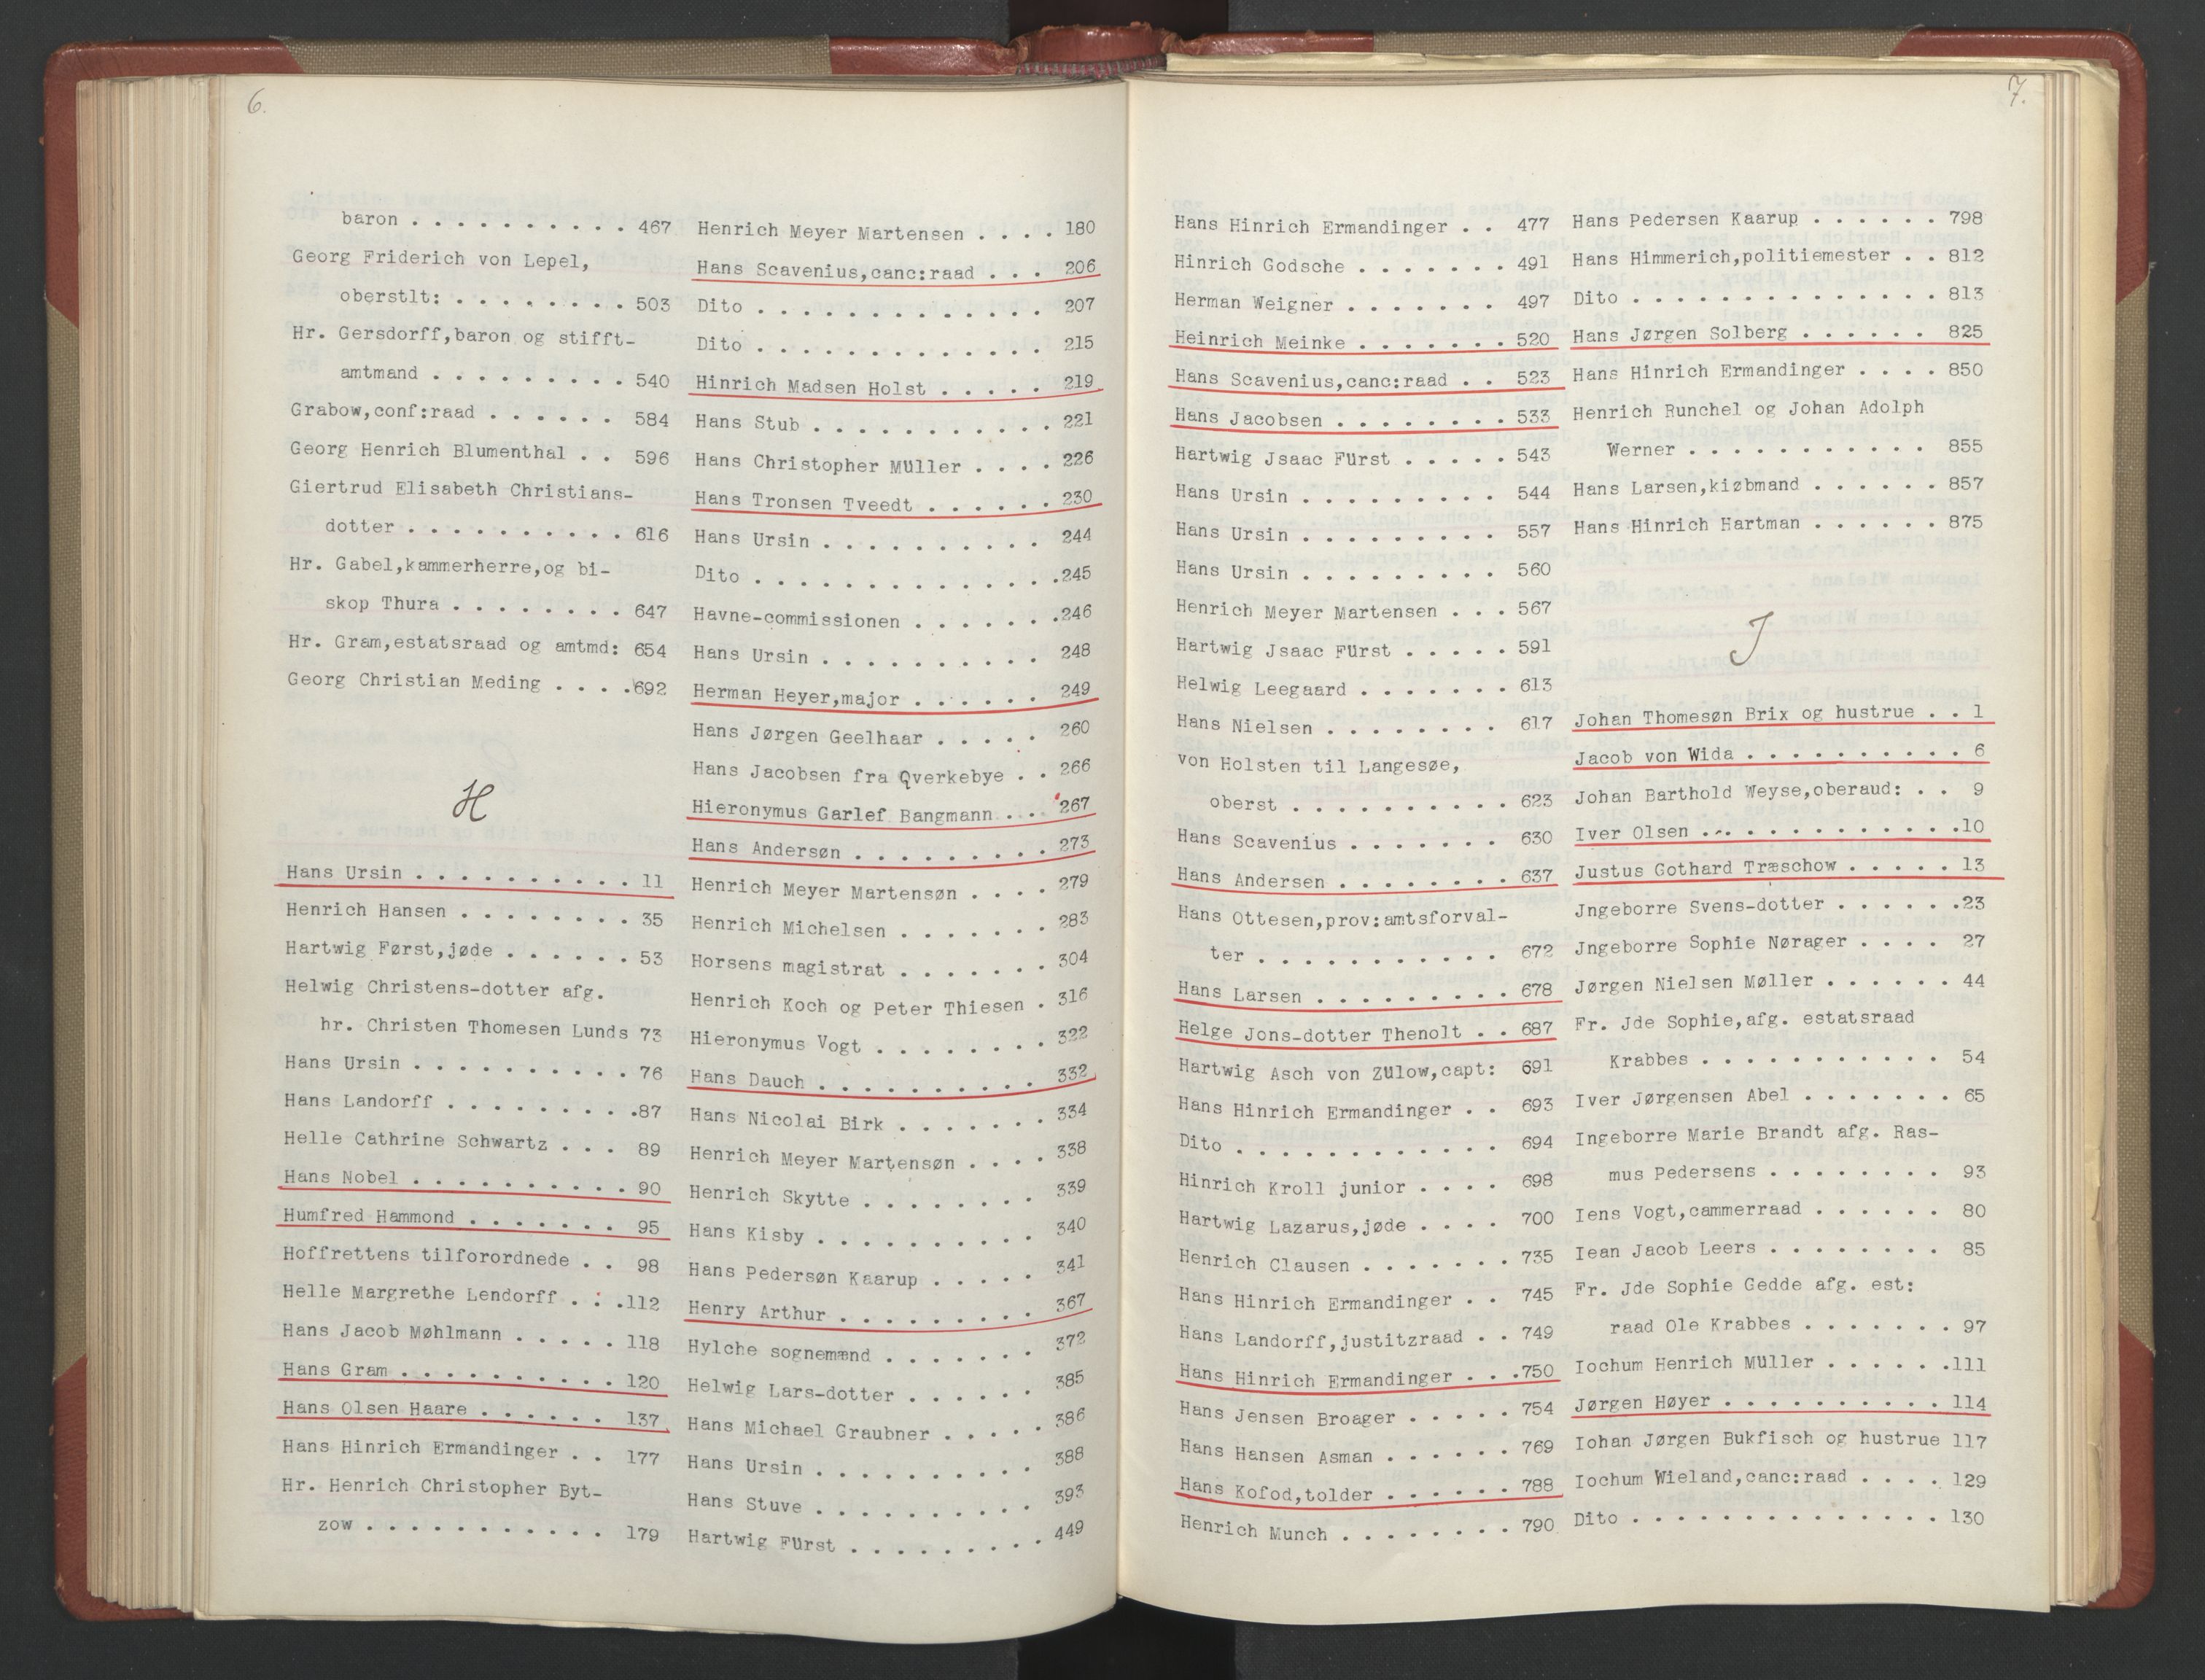 6.
baron . . . . . . . . . . 467
Georg Friderich von Lepel,
oberstlt: . . . . . . . . 503
Hr. Gersdorff,baron og stifft-
amtmand . . . . . . . . . 540
Grabow,conf:raad . . . . . . 584
Georg Henrich Blumenthal . . 596
Giertrud Elisabeth Christians-
dotter . . . . . . . . . . 616
Hr. Gabel,kammerherre,og bi-
skop Thura . . . . . . . . 647
Hr. Gram,estatsraad og amtmd: 654
Georg Christian Meding . . . .692
H
Hans Ursin . . . . . . . . . . 11
Henrich Hansen . . . . . . . . 35
Hartwig Først,jøde . . . . . . 53
Helwig Christens-dotter afg.
hr. Christen Thomesen Lunds 73
Hans Ursin . . . . . . . . . . 76
Hans Landorff . . . . . . . . .87
Helle Cathrine Schwartz . . . 89
Hans Nobel . . . . . . . . . . 90
Humfred Hammond . . . . . . . 95
Hoffrettens tilforordnede . . 98
Helle Margrethe Lendorff . . .112
Hans Jacob Møhlmann . . . . . 118
Hans Gram . . . . . . . . . . 120
Hans Olsen Haare . . . . . . 137
Hans Hinrich Ermandinger . . 177
Hr. Henrich Christopher Byt-
zow . . . . . . . . . . . . 179
Henrich Meyer Martensen . . . . 180
Hans Scavenius,canc:raad . . . 206
Dito . . . . . . . . . . . . . 207
Dito . . . . . . . . . . . . . 215
Hinrich Madsen Holst . . . . . 219
Hans Stub . . . . . . . . . . . 221
Hans Christopher Müller . . . . 226
Hans Tronsen Tveedt . . . . . . 230
Hans Ursin . . . . . . . . . . 244
Dito . . . . . . . . . . . . . .245
Havne-commissionen . . . . . . .246
Hans Ursin . . . . . . . . . . 248
Herman Heyer,major . . . . . . 249
Hans Jørgen Geelhaar . . . . . 260
Hans Jacobsen fra Qverkebye . . 266
Hieronymus Garlef Bangmann . . . 267
Hans Andersøn . . . . . . . . . 273
Henrich Meyer Martensøn . . . . 279
Henrich Michelsen . . . . . . . 283
Horsens magistrat . . . . . . . 304
Henrich Koch og Peter Thiesen . 316
Hieronymus Vogt . . . . . . . . 322
Hans Dauch . . . . . . . . . . 332
Hans Nicolai Birk . . . . . . . 334
Henrich Meyer Martensøn . . . . 338
Henrich Skytte . . . . . . . . 339
Hans Kisby . . . . . . . . . . 340
Hans Pedersøn Kaarup . . . . . 341
Henry Arthur . . . . . . . . . 367
Hylche sognemænd . . . . . . . 372
Helwig Lars-dotter . . . . . . 385
Hans Michael Graubner . . . . . 386
Hans Ursin . . . . . . . . . . 388
Hans Stuve . . . . . . . . . . 393
Hartwig Fürst . . . . . . . . . 449
7.
Hans Hinrich Ermandinger . . 477
Hinrich Godsche . . . . . . . 491
Herman Weigner . . . . . . . 497
Heinrich Meinke . . . . . . . 520
Hans Scavenius,canc:raad . . 523
Hans Jacobsen . . . . . . . . 533
Hartwig Jsaac Fürst . . . . . 543
Hans Ursin . . . . . . . . . 544
Hans Ursin . . . . . . . . . 557
Hans Ursin . . . . . . . . . 560
Henrich Meyer Martensen . . . 567
Hartwig Jsaac Fürst . . . . . 591
Helwig Leegaard . . . . . . . 613
Hans Nielsen . . . . . . . . 617
von Holsten til Langesøe,
oberst . . . . . . . . . . 623
Hans Scavenius . . . . . . . 630
Hans Andersen . . . . . . . . 637
Hans Ottesen,prov:amtsforval-
ter . . . . . . . . . . . 672
Hans Larsen . . . . . . . . . 678
Helge Jons-dotter Thenolt . . 687
Hartwig Asch von Zülow,capt: 691
Hans Hinrich Ermandinger . . 693
Dito . . . . . . . . . . . . 694
Hinrich Kroll junior . . . . 698
Hartwig Lazarus,jøde . . . . 700
Henrich Clausen . . . . . . . 735
Hans Hinrich Ermandinger . . 745
Hans Landorff,justitzraad . . 749
Hans Hinrich Ermandinger . . .750
Hans Jensen Broager . . . . . 754
Hans Hansen Asman . . . . . . 769
Hans Kofod,tolder . . . . . . 788
Henrich Munch . . . . . . . . 790
Hans Pedersen Kaarup . . . . . . 798
Hans Himmerich,politiemester . . 812
Dito . . . . . . . . . . . . . . 813
Hans Jørgen Solberg . . . . . . 825
Hans Hinrich Ermandinger . . . . 850
Henrich Runchel og Johan Adolph
Werner . . . . . . . . . . . 855
Hans Larsen,kiøbmand . . . . . . 857
Hans Hinrich Hartman . . . . . . 875
J
Johan Thomesøn Brix og hustrue . . 1
Jacob von Wida . . . . . . . . . . 6
Johan Barthold Weyse,oberaud: . . 9
Iver Olsen . . . . . . . . . . . .10
Justus Gothard Træschow . . . . . 13
Jngeborre Svens-dotter . . . . . .23
Jngeborre Sophie Nørager . . . . 27
Jørgen Nielsen Møller . . . . . . 44
Fr. Jde Sophie,afg. estatsraad
Krabbes . . . . . . . . . . . 54
Iver Jørgensen Abel . . . . . . . 65
Ingeborre Marie Brandt afg. Ras-
mus Pedersens . . . . . . . . 93
Iens Vogt,cammerraad . . . . . . 80
Iean Jacob Leers . . . . . . . . 85
Fr. Jde Sophie Gedde afg. est:
raad Ole Krabbes . . . . . . . 97
Iochum Henrich Müller . . . . . .111
Jørgen Høyer . . . . . . . . . . 114
Iohan Jørgen Bukfisch og hustrue 117
Iochum Wieland,canc:raad . . . . 129
Dito . . . . . . . . . . . . . . 130